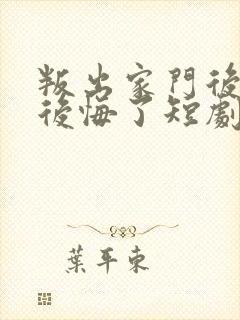 叛出家門後
後悔了短劇
葉平東